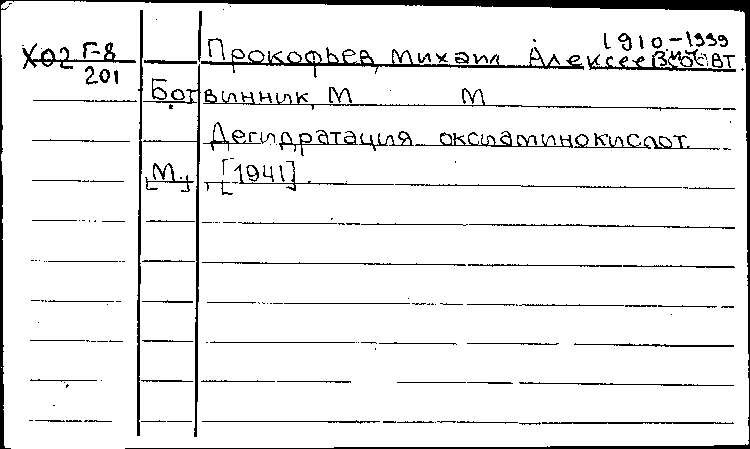 1910-1999
Х02 Г-8 Прокофьев, Михаил Алексеевич
201
Ботвинник, М М
Дегидратация оксиаминокислот.
[М.], [1941].